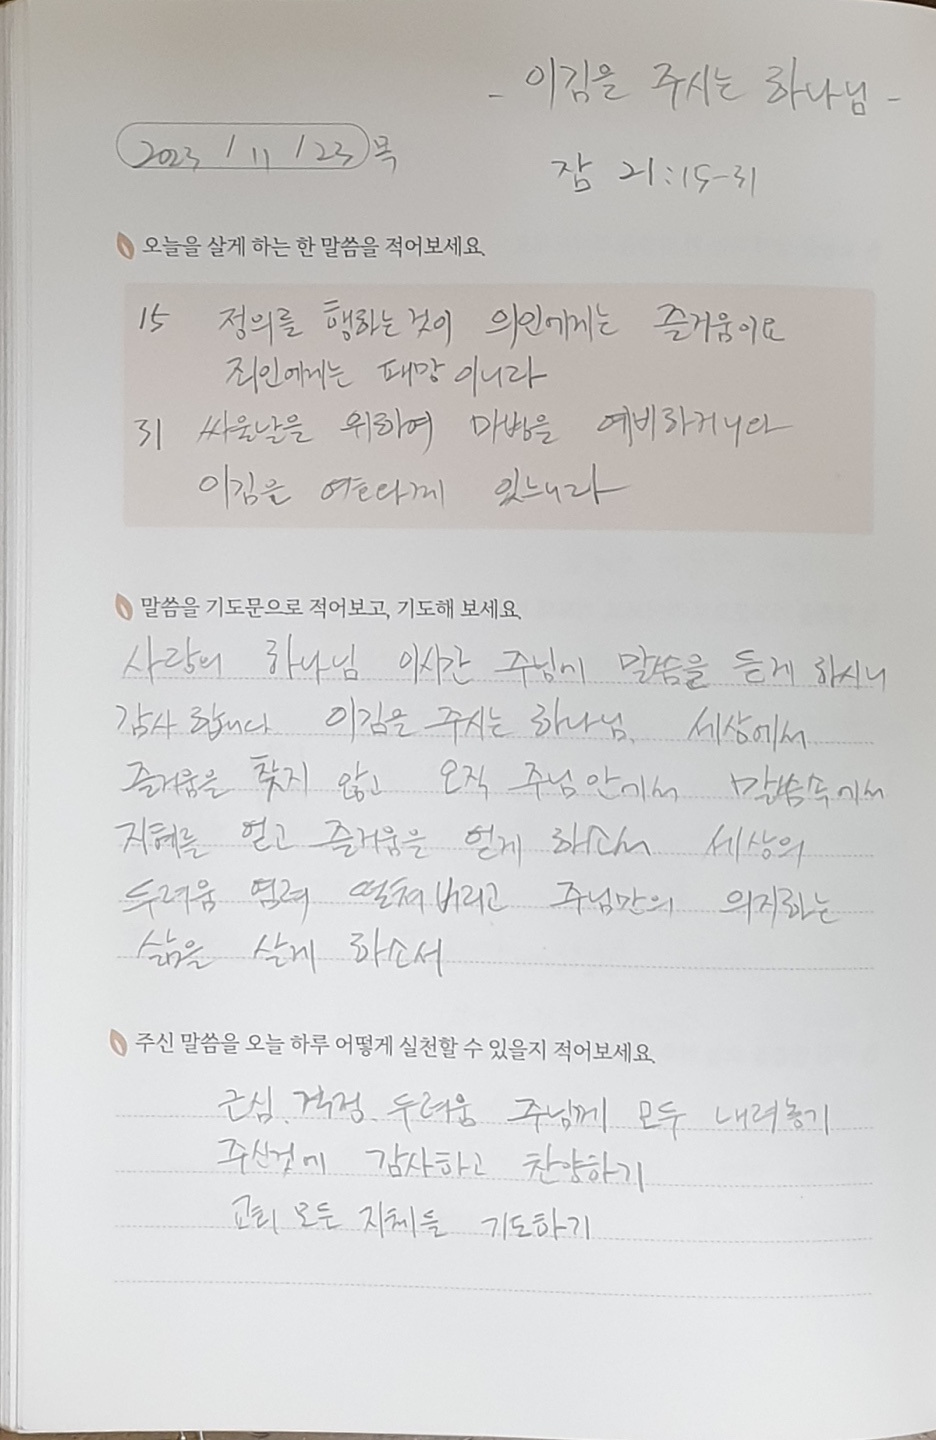 - 이김을 주시는 하나님 -
2023 / 11 / 23 목
잠 21:15-31
오늘을 살게 하는 한 말씀을 적어보세요.
15 정의를 행하는 것이 의인에게는 즐거움이요
죄인에게는 패망이니라
31 싸울날을 위하여 마병을 예비하거니와
이김을 여호와께 있느니라
말씀을 기도문으로 적어보고, 기도해 보세요.
사랑의 하나님 이시간 주님에 말씀을 듣게 하시니
감사 합니다 이김을 주시는 하나님. 세상에서
즐거움을 찾지 않고 오직 주님 안에서 말씀속에서
지혜를 얻고 즐거움을 얻게 하소서 세상의
두려움 염려 떨쳐 버리고 주님만의 의지하는
삶을 살게 하소서
주신 말씀을 오늘 하루 어떻게 실천할 수 있을지 적어보세요.
근심. 걱정. 두려움 주님께 모두 내려놓기
주신것에 감사하고 찬양하기
교회 모든 지체들 기도하기